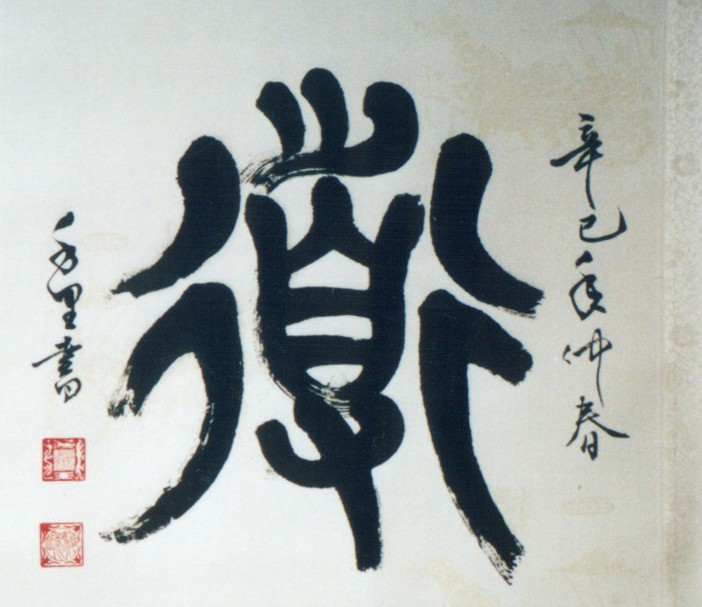 辛巳年仲春
道
里書